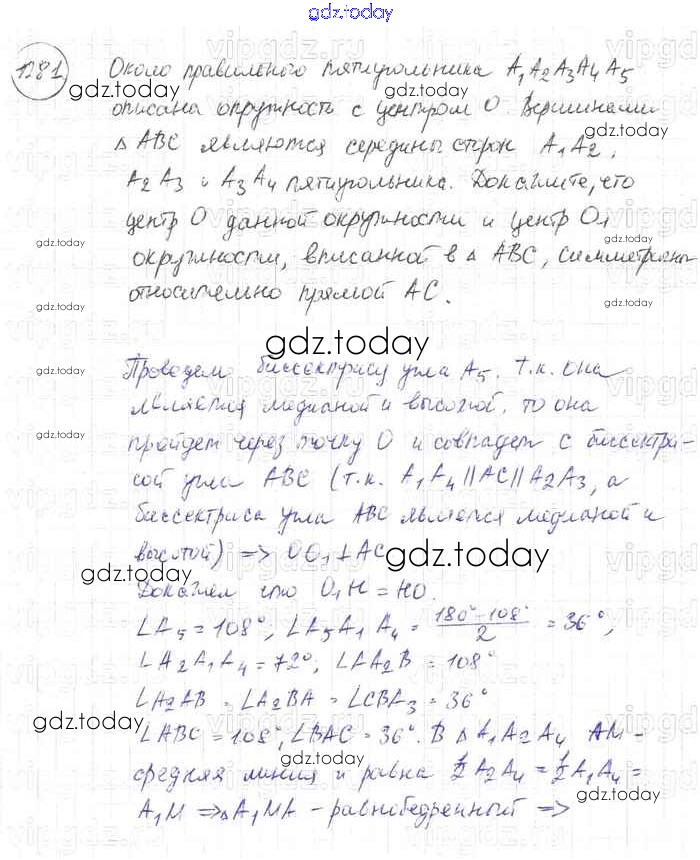 gdz.today
1081
Около правильного пятиугольника A₁A₂A₃A₄A₅
описана окружность с центром O. Вершинами
△ ABC являются середины сторон A₁A₂,
A₂A₃ и A₃A₄ пятиугольника. Докажите, что
центр O данной окружности и центр O₁
окружности, вписанной в △ ABC, симметричны
относительно прямой AC.
gdz.today
Проведем биссектрису угла A₅. Т.к. она
является медианой и высотой, то она
пройдет через точку O и совпадет с биссектри-
сой угла ABC (т.к. A₁A₄ || AC || A₂A₃, а
биссектриса угла ABC является медианой и
высотой) => OO₁ ⊥ AC
Докажем что O₁H = HO.
∠A₅ = 108°, ∠A₅A₁A₄ = (180°-108°)/2 = 36°,
∠A₂A₁A₄ = 72°, ∠AA₂B = 108°
∠A₂AB = ∠A₂BA = ∠CBA₃ = 36°
∠ABC = 108°, ∠BAC = 36°. В △ A₁A₂A₄ AM -
средняя линия и равна ½ A₂A₄ = ½ A₁A₄ =
A₁M => △A₁MA - равнобедренный =>